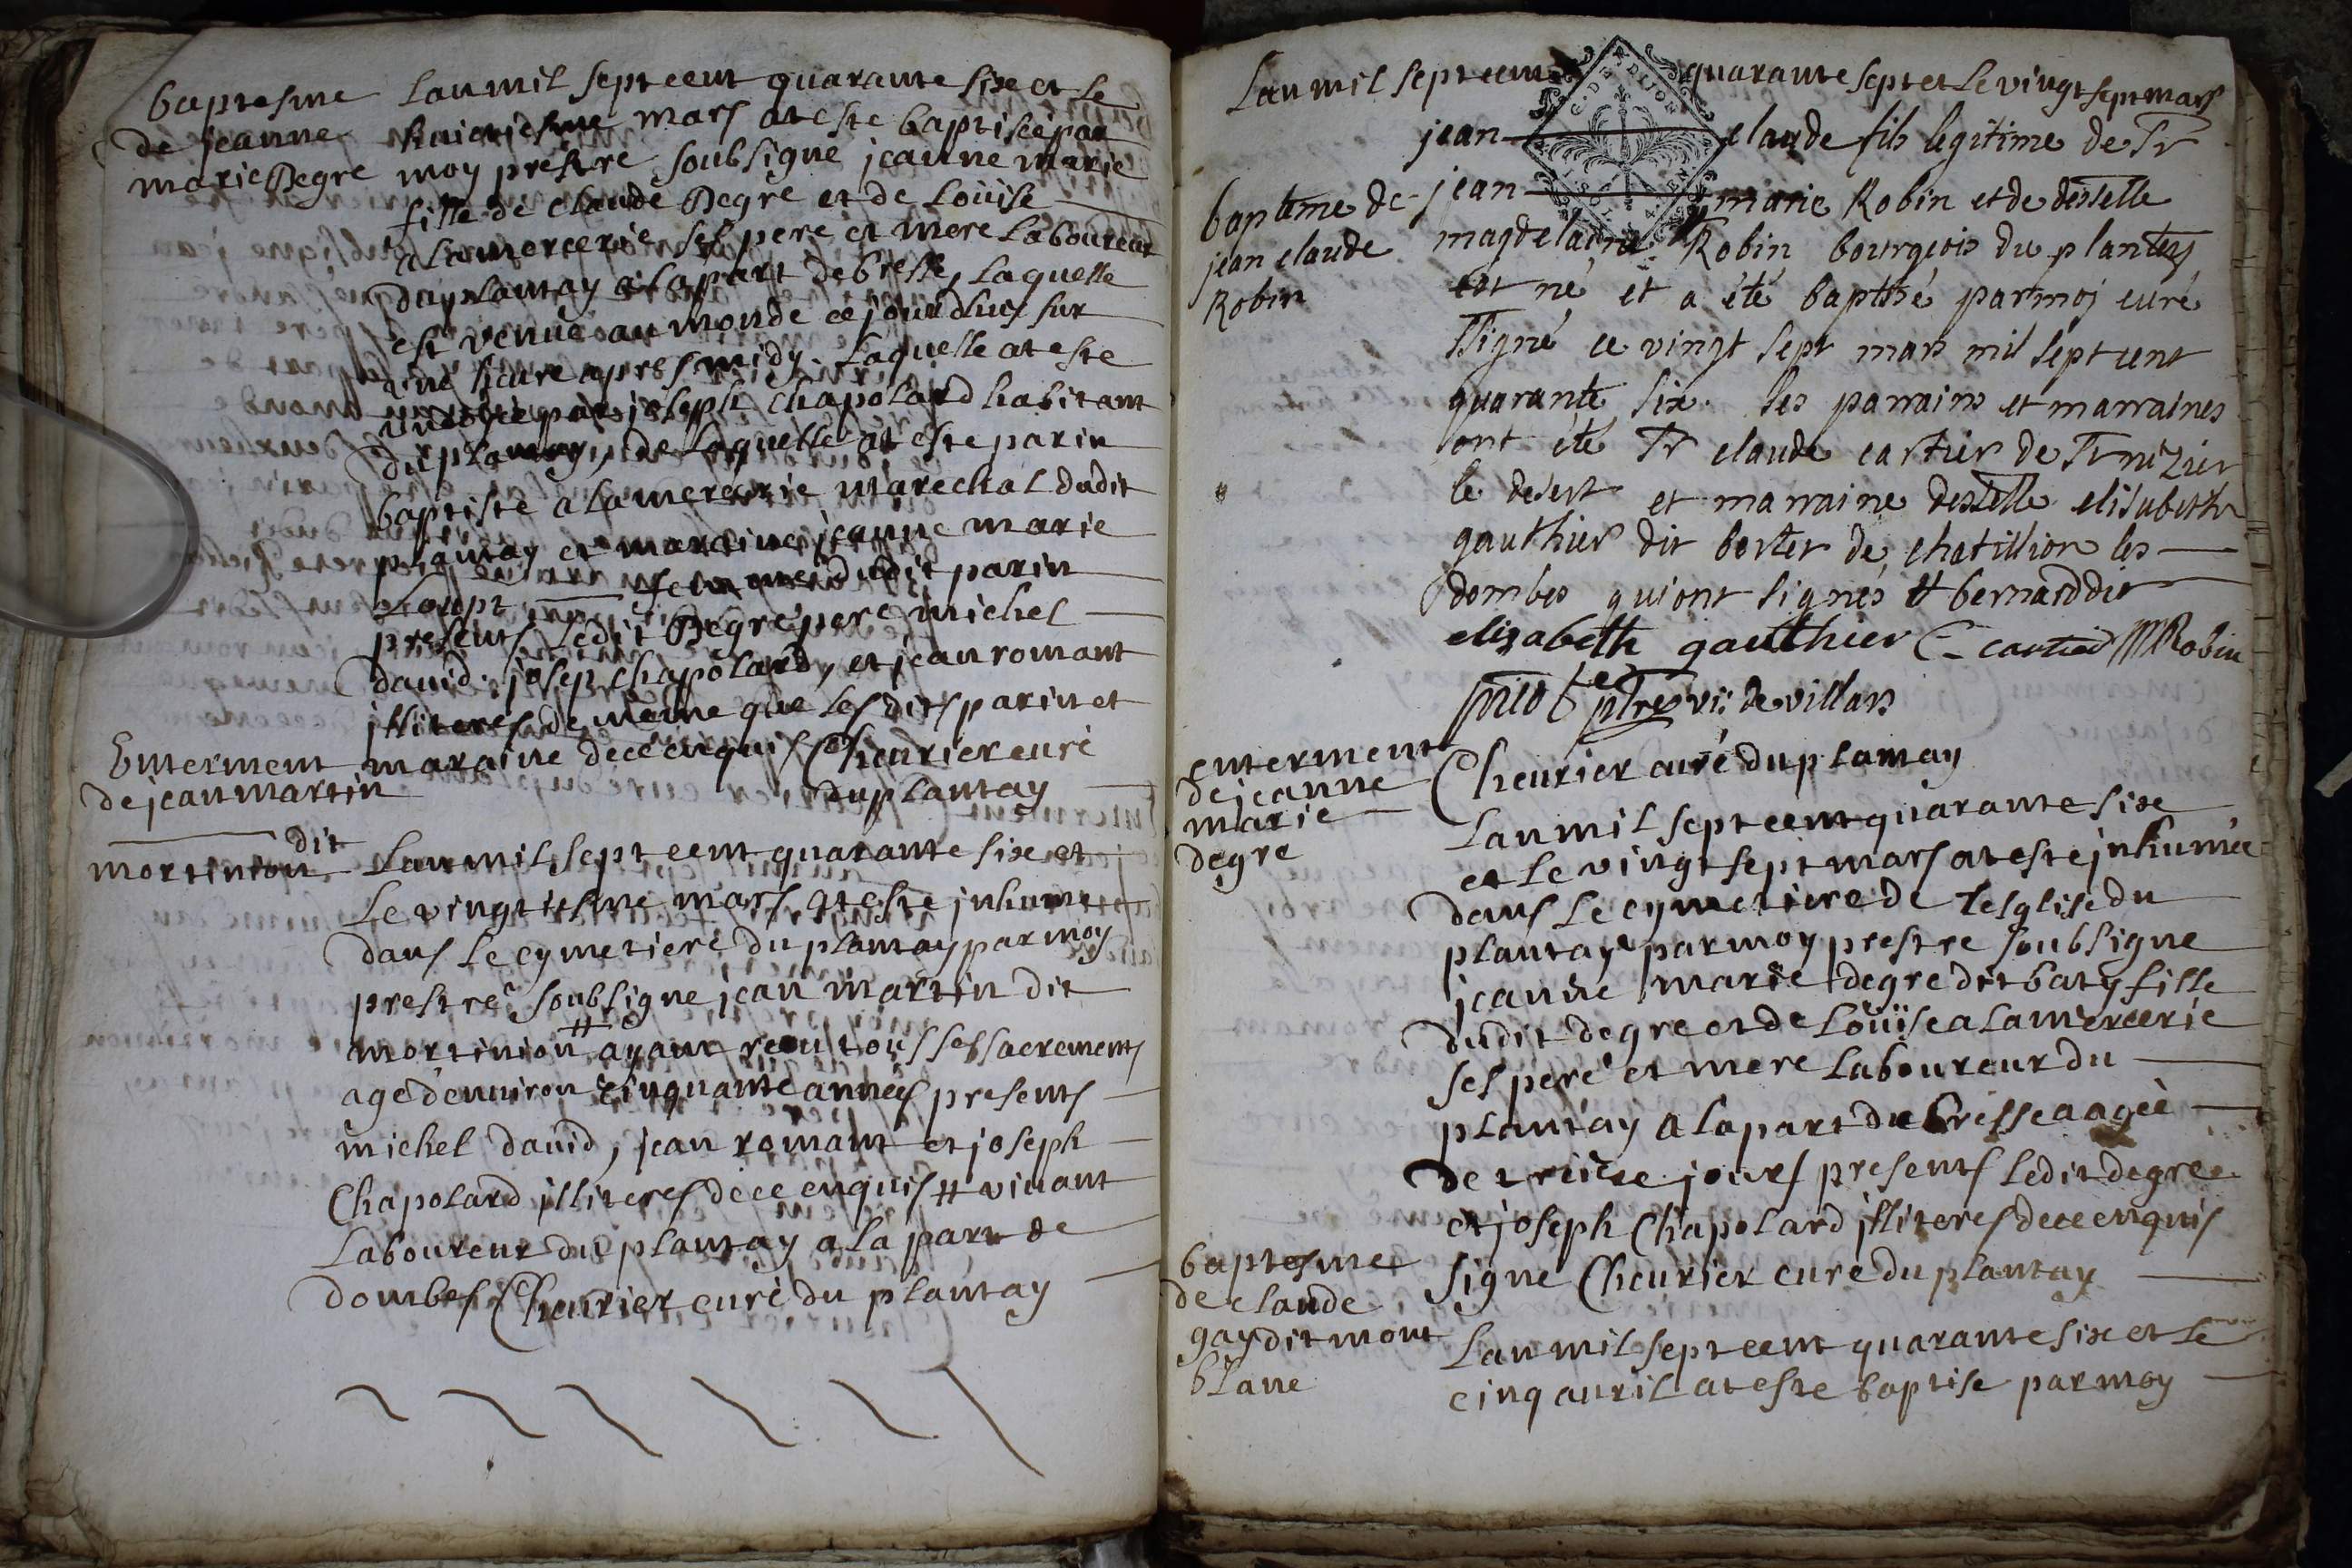 baptesme
de jeanne
marie Degre
Lan mil sept cent quarante sixe et le
huictiesme mars at este baptisée par
moy prestre soubsigne jeanne marie
fille de claude Degre et de Loüise
alamercerie ses pere et mere Laboureur
du plantay a la part de bresse, Laquelle
est venüe au monde ce jourdhuy sur
une heure apres midy. Laquelle at este
par joseph chapolard habitant
du plantay, de Laquelle at este parin
baptiste alamercerie marechal dudit
plantay et maraine jeanne marie
Loupt femme dudit parin
presents Ledit Degre pere michel
david. josep chapolard, et jean romant
jlliteres de meme que Les dits parin et
maraine de ce enquis Cheurier curé
du plantay
Enterment
de jean martin
dit
mortinion
Lan mil sept cent quarante sixe et
Le vingtiesme mars at este jnhume
dans Le cymetiere du plantay par moy
prestre soubsigne jean martin dit
mortinion # ayant reçu tous ses sacrements
age d'enuiron cinquante années presents
michel dauid, jean romant et joseph
Chapolard jlliteres de ce enquis # viuant
Laboureur du plantay a la part de
dombes Cheurier curé du plantay
Lan mil sept cent quarante sept et Le vingt sept mars
jean claude fils legitime de Sr
baptême de
jean claude
Robin
jean marie Robin et de desselle
magdelaine Robin bourgeois du plantay
est né et a été baptisé par moj curé
ssigné ce vingt sept mars mil sept cent
quarante six. les parrains et marraines
ont été Sr claude cartier de St nizier
le desert et marraine desselle elisabeth
gauthier dit bortet de chatillion les
dombes qui ont signés # bernard dit
elizabeth gauthier C cartier MRobin
ptre vic de villars
Cheurier curé du plantay
enterment
de jeanne
marie
degre
Lan mil sept cent quarante sixe
et Le vingt sept mars at este jnhumée
dans Le cymetiere de Lesglise du
plantay par moy prestre soubsigne
jeanne marie degre dit baty fille
dudit degre et de Loüise alamercerie
ses pere et mere Laboureur du
plantay a la part de bresse aagée
de treize jours presents Ledit degre
et joseph Chapolard jlliteres de ce enquis
signe Cheurier cure du plantay
baptesme
de claude
gay dit mont
blanc
Lan mil sept cent quarante sixe et Le
cinq auril at este baptise par moy